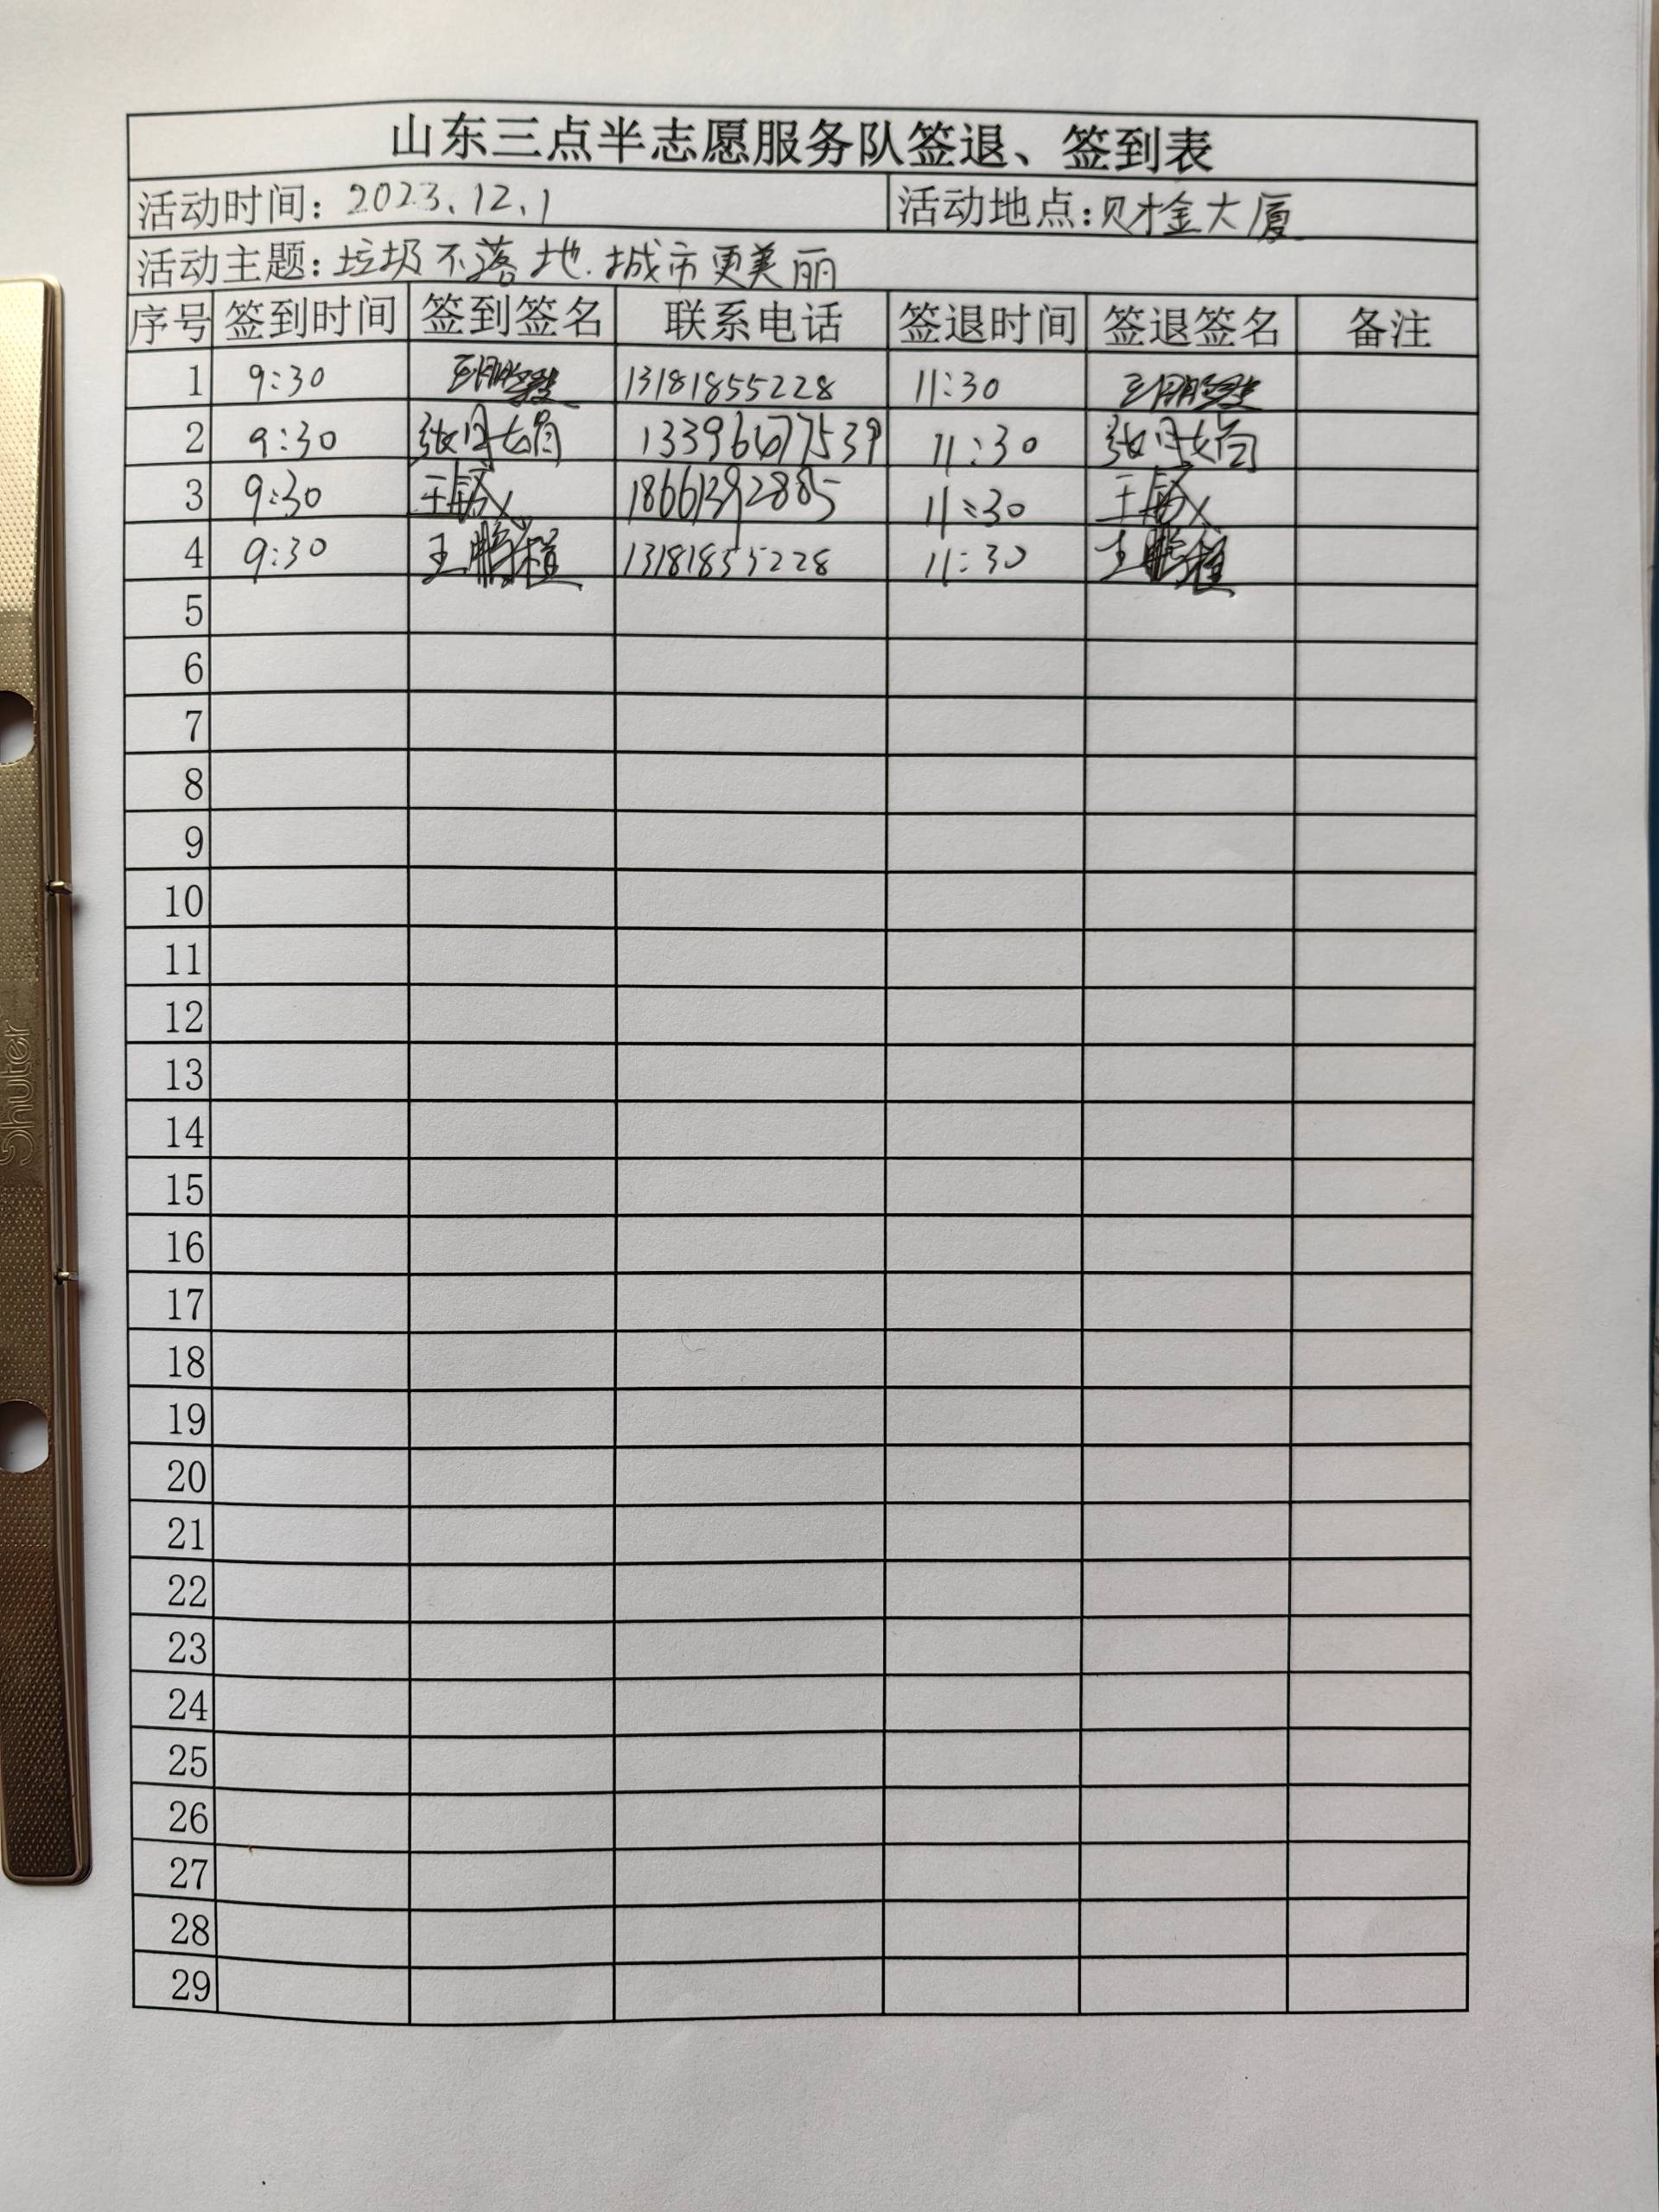 山东三点半志愿服务队签退、签到表
活动时间：2023.12.1 活动地点：财金大厦
活动主题：垃圾不落地.城市更美丽
序号 签到时间 签到签名 联系电话 签退时间 签退签名 备注
1 9:30 13181855228 11:30
2 9:30 张月娟 13396477539 11:30 张月娟
3 9:30 王敏 18661392885 11:30 王敏
4 9:30 王鹏植 13181855228 11:30 王鹏植
5
6
7
8
9
10
11
12
13
14
15
16
17
18
19
20
21
22
23
24
25
26
27
28
29
Shuter